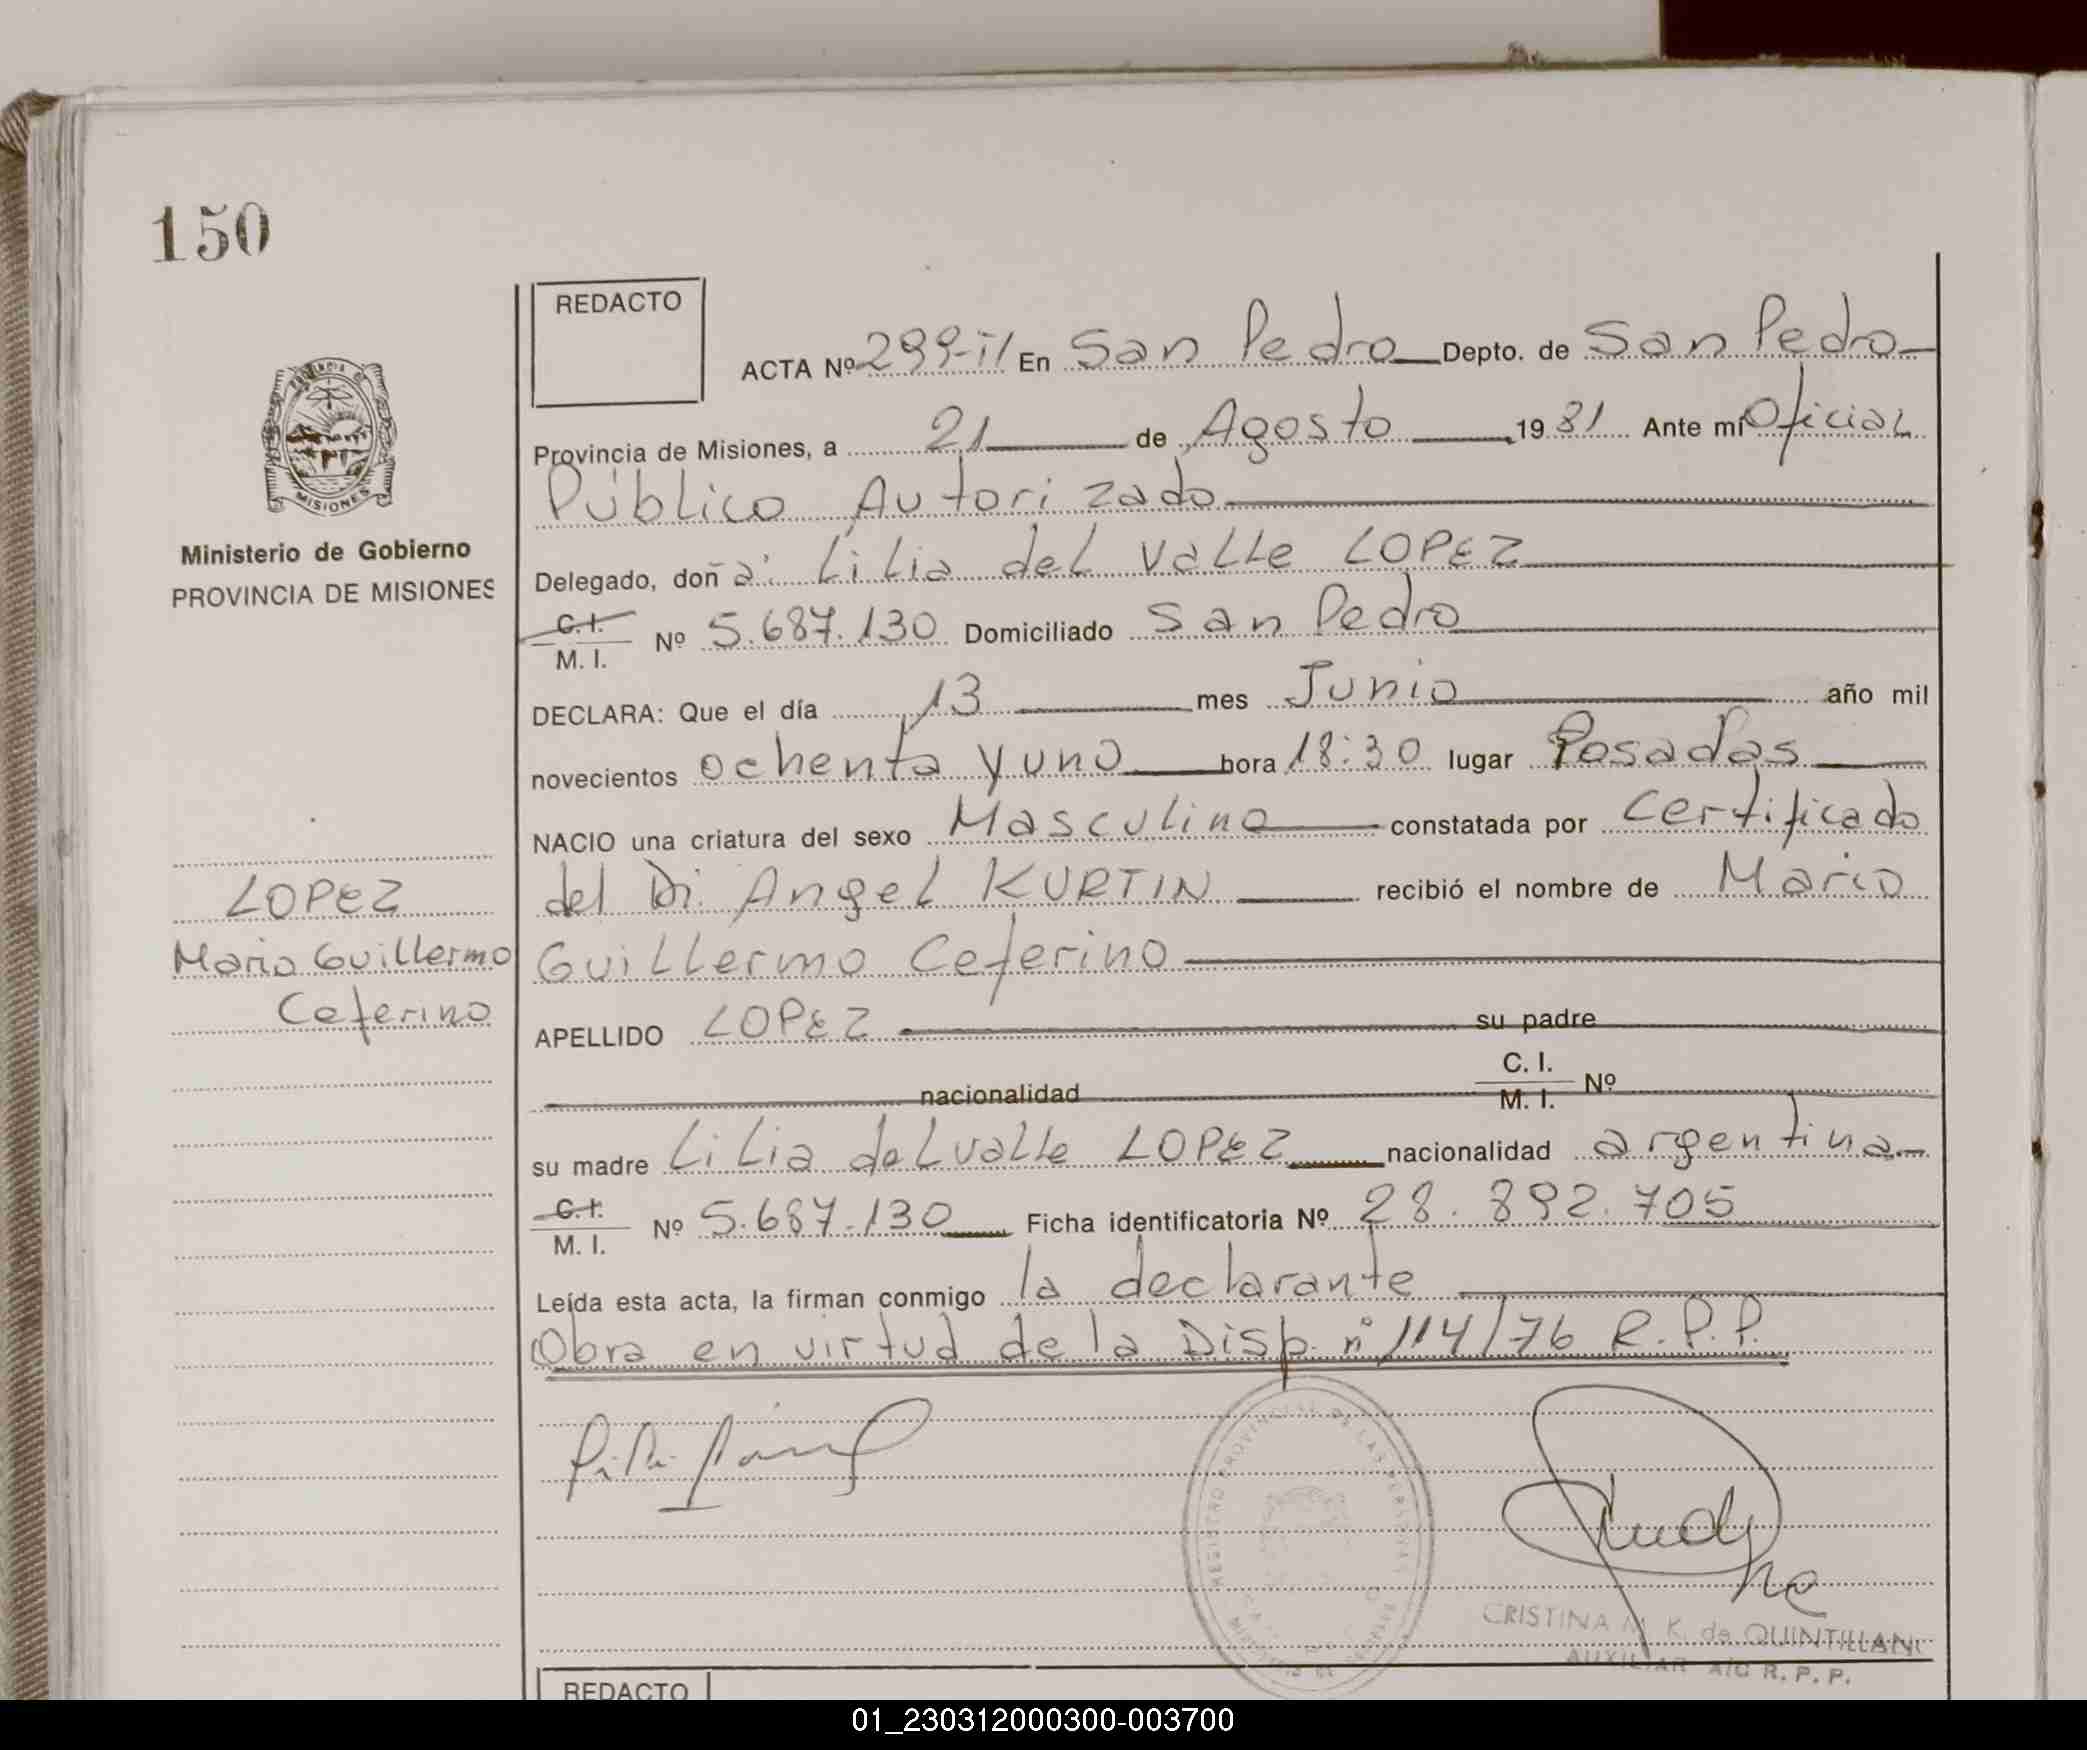 150
REDACTO
ACTA Nº 299-II En San Pedro Depto. de San Pedro
Provincia de Misiones, a 21 de Agosto 1981 Ante mí Oficial
Público Autorizado
Delegado, doña: Lilia del Valle LOPEZ
C. I.
M. I. Nº 5.687.130 Domiciliado San Pedro
DECLARA: Que el día 13 mes Junio año mil
novecientos ochenta y uno hora 18:30 lugar Posadas
NACIO una criatura del sexo Masculino constatada por Certificado
del Dr. Angel KURTIN recibió el nombre de Mario
Guillermo Ceferino
APELLIDO LOPEZ su padre
nacionalidad C. I.
M. I. Nº
su madre Lilia del Valle LOPEZ nacionalidad argentina
C. I.
M. I. Nº 5.687.130 Ficha identificatoria Nº 28.892.705
Leída esta acta, la firman conmigo la declarante
Obra en virtud de la Disp. nº 114/76 R.P.P.
MISIONES
Ministerio de Gobierno
PROVINCIA DE MISIONES
LOPEZ
Mario Guillermo
Ceferino
REGISTRO PROVINCIAL DE LAS PERSONAS
CRISTINA M. K. de QUINTILLAN
AUXILIAR A/C R. P. P.
REDACTO
01_230312000300-003700